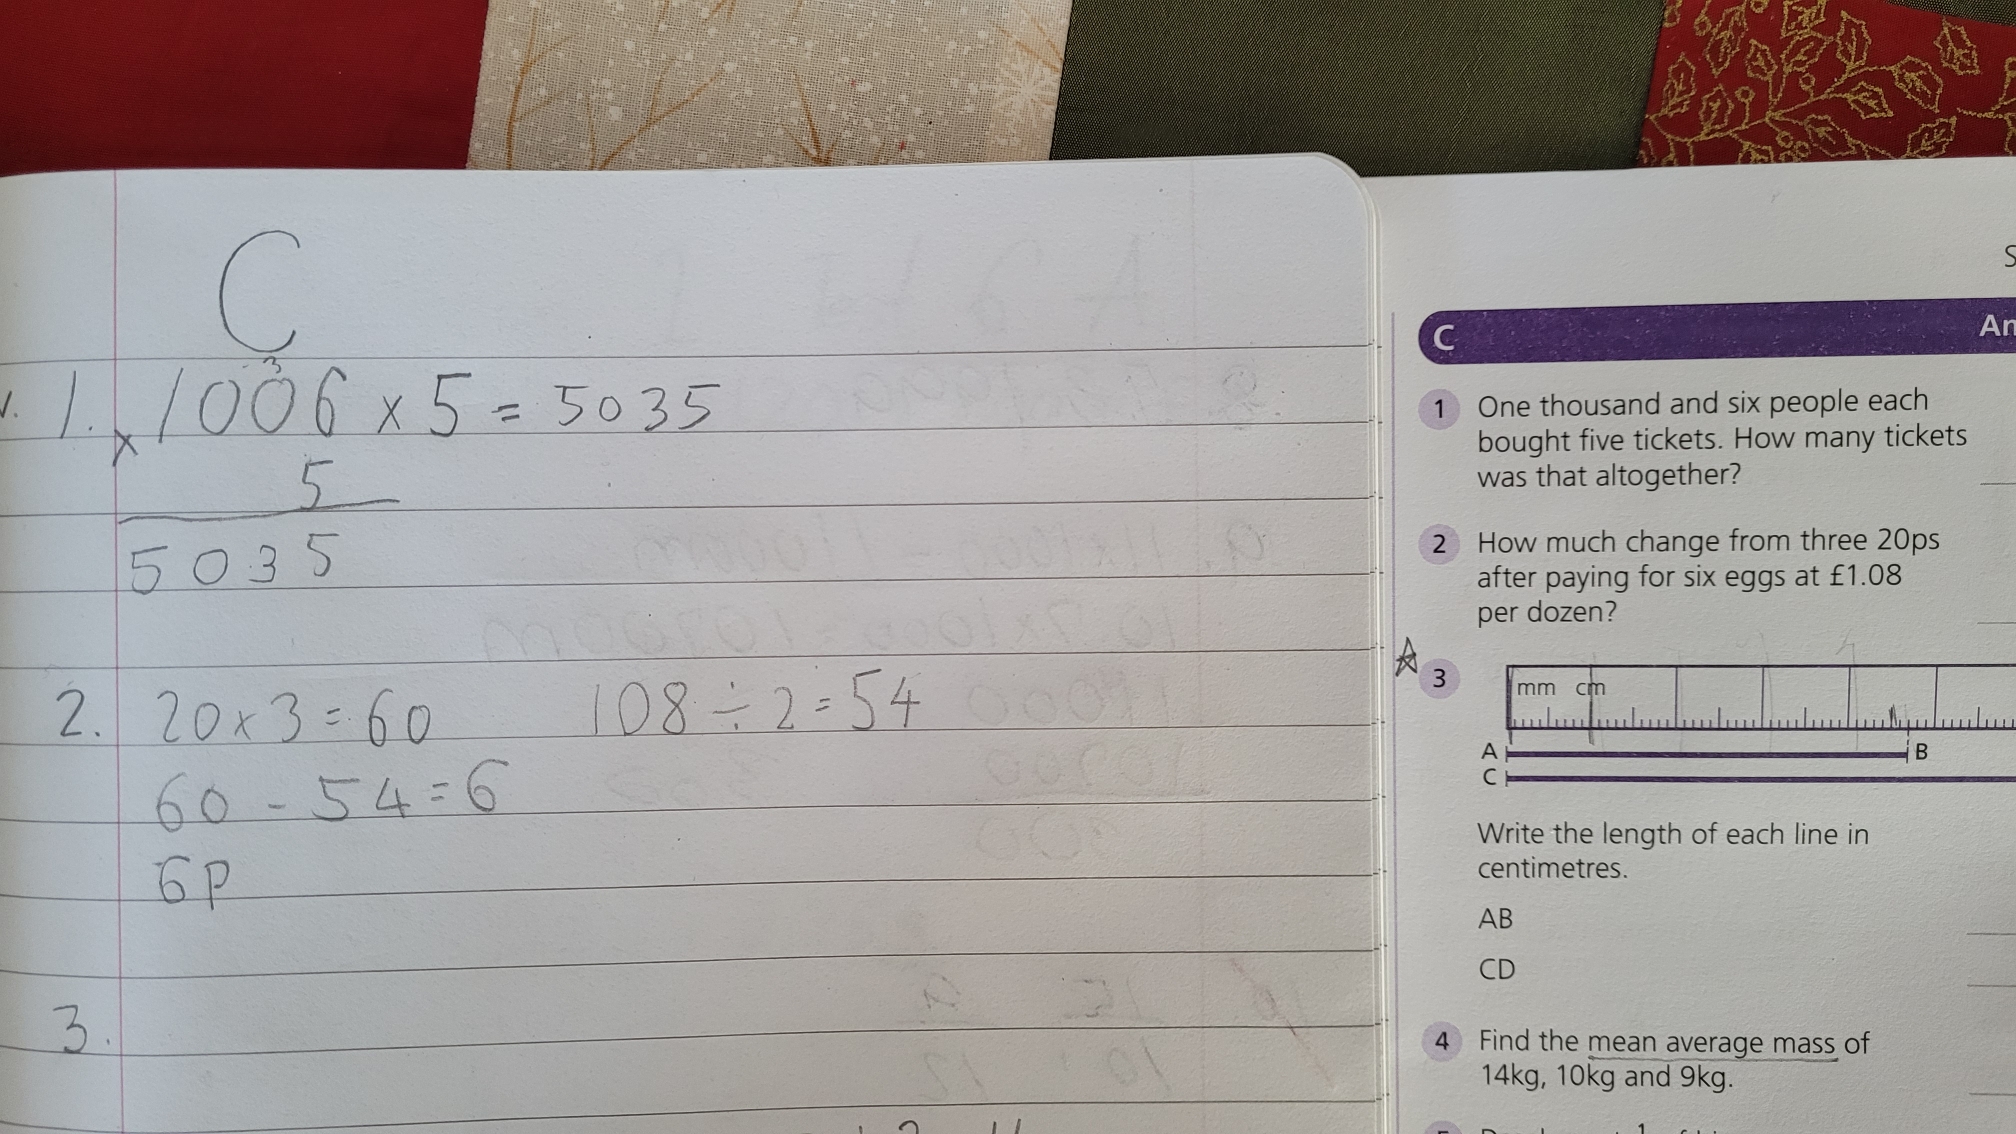 C
3
1. 1006 x 5 = 5035
x 5
5035
2. 20 x 3 = 60 108 ÷ 2 = 54
60 - 54 = 6
6p
3.
C
1 One thousand and six people each
bought five tickets. How many tickets
was that altogether?
2 How much change from three 20ps
after paying for six eggs at £1.08
per dozen?
3
mm cm
A B
C
Write the length of each line in
centimetres.
AB
CD
4 Find the mean average mass of
14kg, 10kg and 9kg.